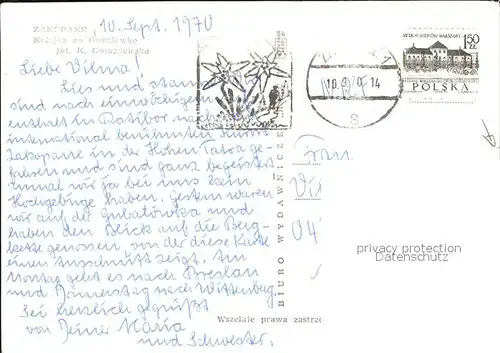 ZAKOPANE
10. Sept. 1970
Kolejka na Gubałówkę
fot. K. Gorazdowska
Liebe Vilma!
Lies und
sind nach einwöchigem
enthalt in Ratibor nach
international berühmten Kurort
Zakopane in der Hohen Tatra ge-
fahren und sind ganz begeistert
zumal wir ja bei uns kein
Hochgebirge haben. Gestern waren
wir auf der Gubałówka und
haben den Blick auf die Berg-
kette genossen, von der diese Karte
einen Ausschnitt zeigt. Am
Montag geht es nach Breslau
und Donnerstag nach Wittenberg.
Sei herzlich gegrüßt
von Deiner Maria
und Schwester.
BIURO WYDAWNICZE
Wszelkie prawa zastrze
10.9.70.14
S
MEDIUM WIEKÓW WARSZAWY
1,50 ZŁ
POLSKA
Frau
Vil
04
privacy protection
Datenschutz